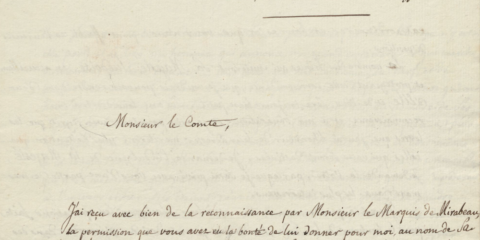 Monsieur le Comte,
J'ai reçu avec bien de la reconnaissance par Monsieur le Marquis de Mirabeau,
la permission que vous avez eu la bonté de lui donner pour moi, au nom de Sa